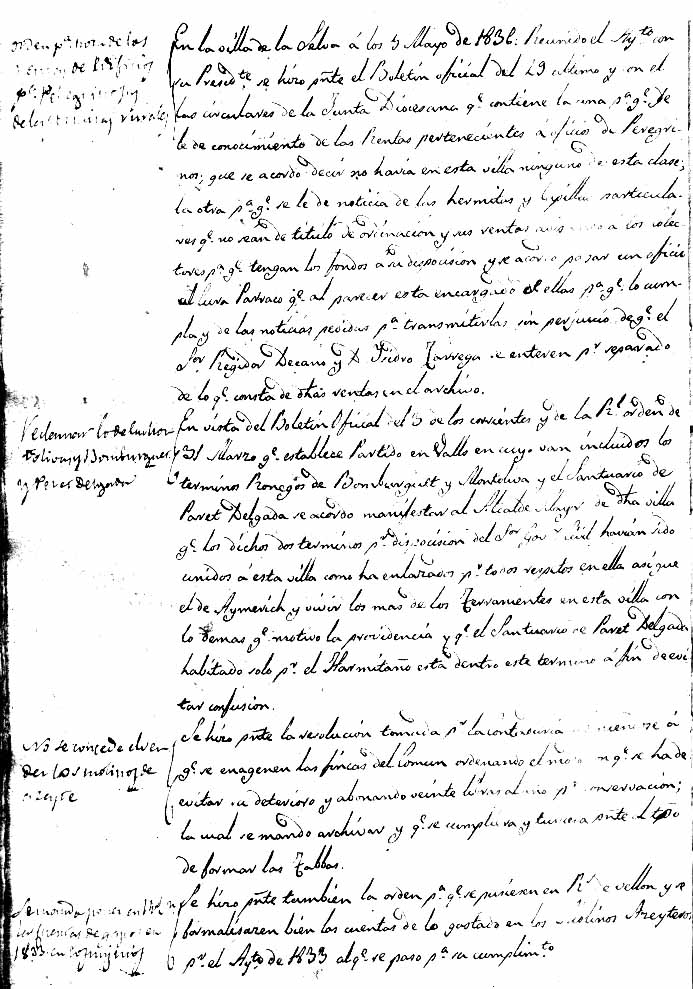 En la villa de la Selva á los 5 Mayo de 1836. Reunido el Aytº con
su Presidte se hizo pnte el Boletin oficial del 29 ultimo y con el
las circulares de la Junta Diocesana qe contiene la una pa qe se
le de conocimiento de las Rentas pertenecientes á oficios de Peregri-
nos; que se acordo decir no havia en esta villa ninguno de esta clase;
la otra pa qe se le de noticia de las hermitas y Capillas particula-
res qe no sean de titulo de ordinacion y sus rentas á los colec-
tores pa qe tengan los fondos a su disposicion y se acordo pasar un oficio
al Cura Parraco qe al parecer esta encargado de ellas pa qe lo cum-
pla y de las noticias pedidas pa transmitirlas sin perjuicio de qe el
Sor Regidor Decano y D Isidro Tarrega se enteren pr separado
de lo qe consta de dhas rentas en el archivo.
Orden pa nota de las
Rentas de
pa Peregrinos y
de las rurales
En vista del Boletin Oficial del 3 de los corrientes y de la Rl orden de
31 Marzo qe establece Partido en Valls en cuyo van incluidos los
terminos Ronegos de Bomburguet y Montoliva y el Santuario de
Paret Delgada se acordo manifestar al Alcalde Mayr de dha villa
qe los dichos dos terminos pr disposicion del Sor Govr Civil havian sido
unidos á esta villa como ha enlazados pr todos respetos en ella asi que
el de Aymerich y vivir los mas de los Terranientes en esta villa con
lo demas qe motivo la providencia y qe el Santuario de Paret Delgada
habitado solo pr el Harmitaño está dentro este termino á fin de evi-
tar confusion.
y Paret Delgada
Se hizo pnte la resolucion tomada pr la contaduria á
qe se enagenen las fincas del Comun ordenando el modo en qe se ha de
evitar su deterioro y abonando veinte libras al año pr conservacion;
la cual se mando archivar y qe se cumpliera y tuviera pnte al tpo
de formar las Tabbas.
No se concede el ven
der los molinos de
azeyte
Se hizo pnte tambien la orden pa qe se pusiesen en Rs de vellon y se
formalisaren bien las cuentas de lo gastado en los Molinos Azeyteros
pr el Aytº de 1833 al qe se paso pa su cumplimto
Se manda poner en Rs vn
las cuentas de gastos en
1833 en los molinos